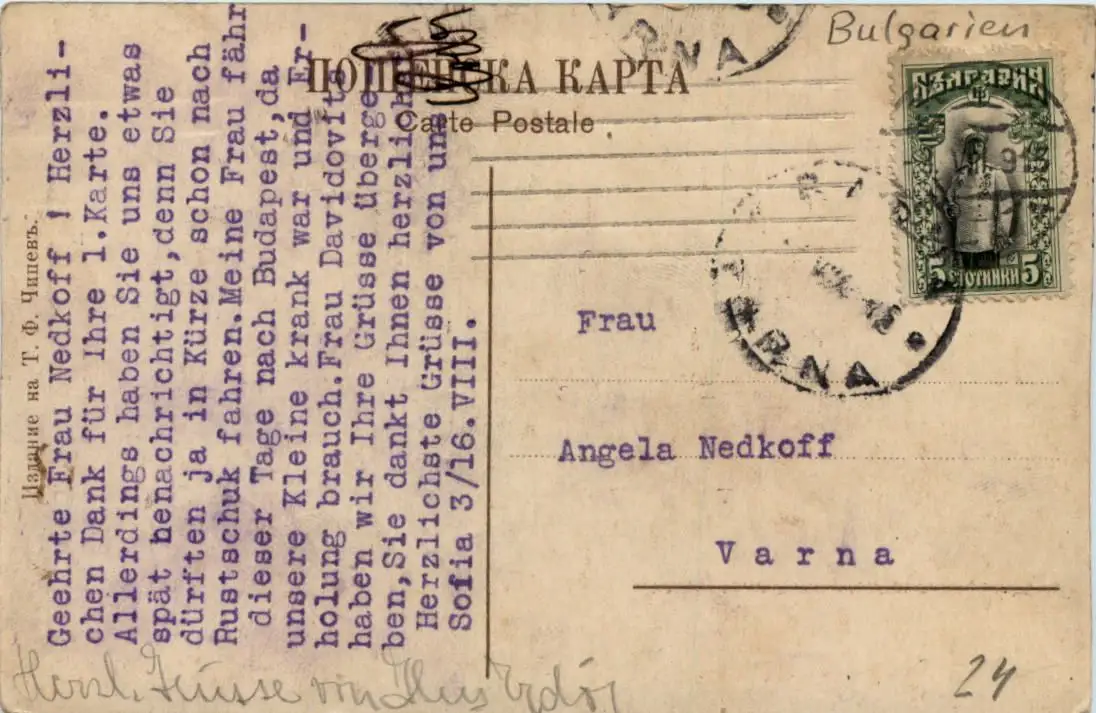 Bulgarien
ПОЩЕНСКА КАРТА
Carte Postale
БЪЛГАРИЯ
5 СТОТИНКИ 5
VARNA
Geehrte Frau Nedkoff ! Herzli-
chen Dank für Ihre l.Karte.
Allerdings haben Sie uns etwas
spät benachrichtigt,denn Sie
dürften ja in Kürze schon nach
Rustschuk fahren.Meine Frau fähr
dieser Tage nach Budapest,da
unsere Kleine krank war und Er-
holung brauch.Frau Davidovits
haben wir Ihre Grüsse überge
ben,Sie dankt Ihnen herzlich
Herzlichste Grüsse von uns
Sofia 3/16.VIII.
Frau
Angela Nedkoff
Varna
Издание на Т. Ф. Чипевъ.
Herzl. Grüsse von
24